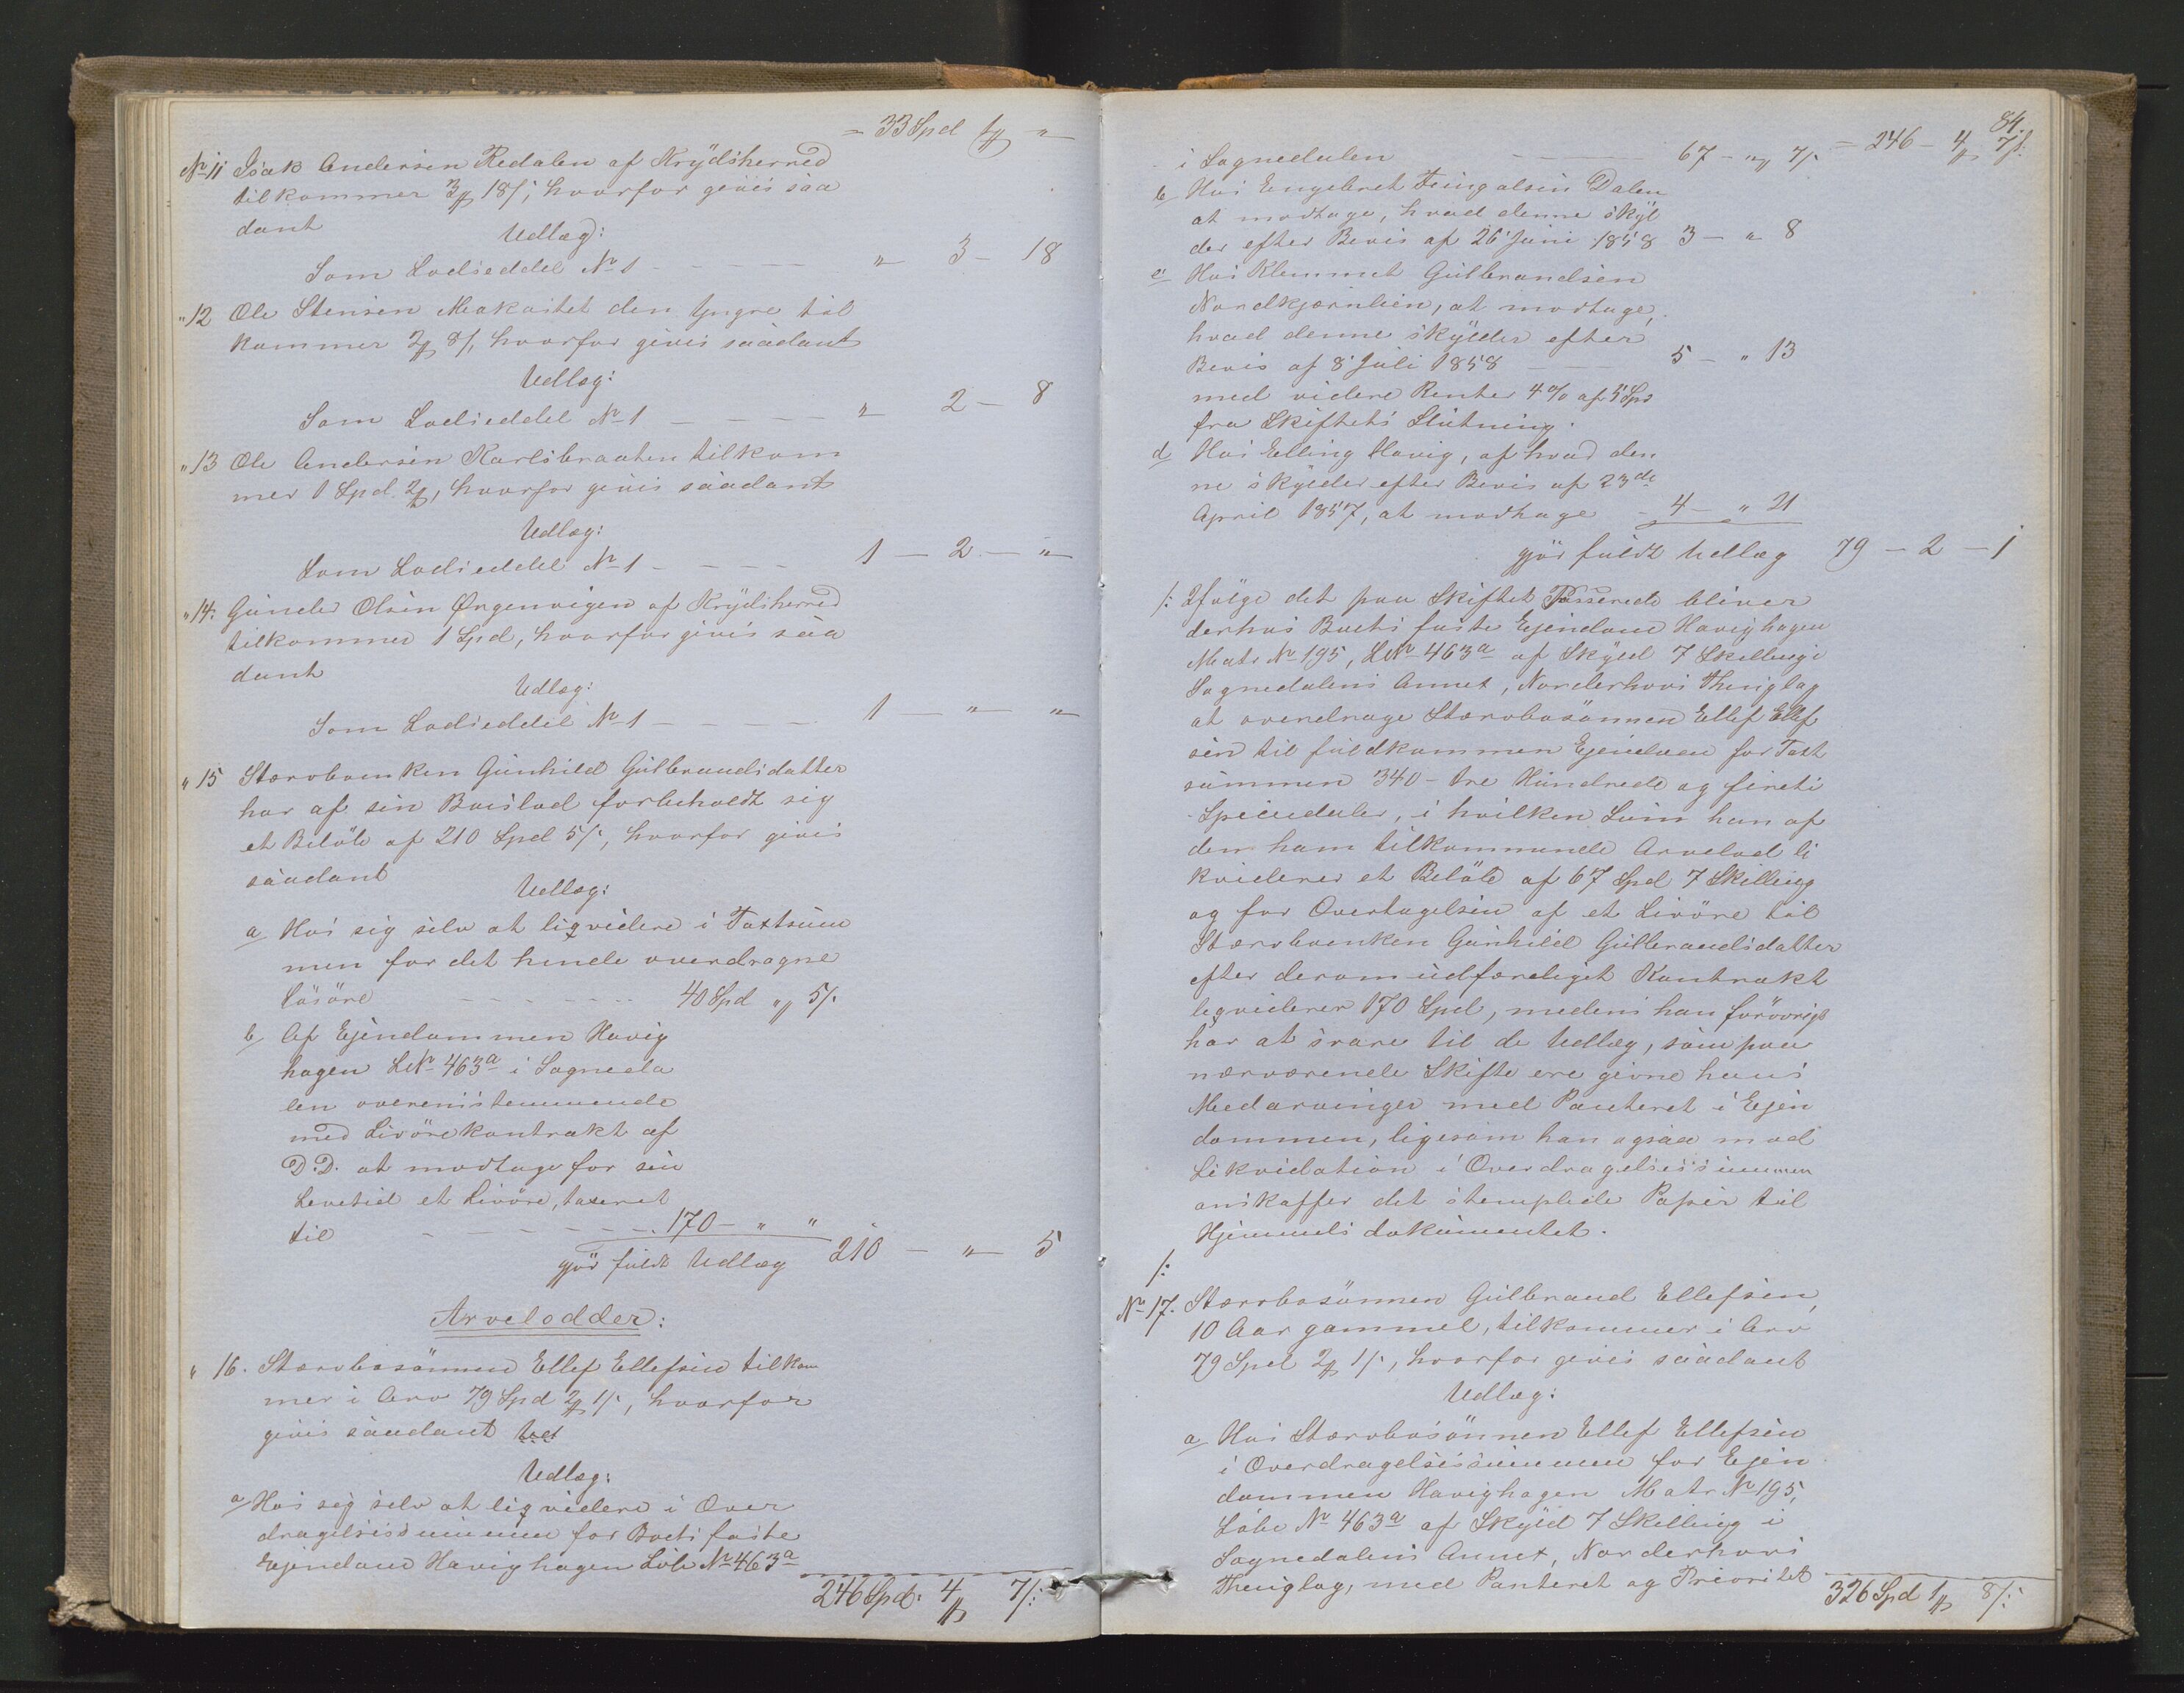 = 33 Spd 1 ₰ "
No 11 Isak Andersen Redalen af Krydsherred
tilkommer 3 ₰ 18 /:, hvorfor gives saa
dant
Udlæg:
Som Lodseddel No 1 - - - - " 3 - 18
" 12 Ole Stensen Medkastet den Yngre til
kommer 2 ₰ 8 /:, hvorfor gives saadant
Udlæg:
Som Lodseddel No 1 - - - - " 2 - 8
" 13 Ole Andersen Karlsbraaten tilkom
mer 1 Spd. 2 ₰, hvorfor gives saadant
Udlæg:
Som Lodseddel No 1 - - - - 1 - 2 - "
" 14. Gunder Olsen Ørgenvigen af Krydsherred
tilkommer 1 Spd, hvorfor gives saa
dant
Udlæg:
Som Lodseddel No 1 - - - - 1 - " - "
" 15 Stervboenken Gunhild Gulbrandsdatter
har af sin Boeslod forbeholdt sig
et Beløb af 210 Spd 5 /:, hvorfor gives
saadant
Udlæg:
a Hos sig selv at liqvidere i Taxtsum
men for det hende overdragne
Løsøre - - - - - - 40 Spd " ₰ 5 /:
b Af Ejendommen Havig
hagen LNo 463a i Sogneda
len overensstemmende
med Livørekontrakt af
D. D. at modtage for sin
Levetid et Livøre, taxeret
til - - - - - - 170 - " "
gjør fuldt Udlæg 210 - " - 5
Arvelodder:
" 16. Stervbosønnen Ellef Ellefsen tilkom
mer i Arv 79 Spd 2 ₰ 1 /:, hvorfor
gives saadant Ud
Udlæg:
a Hos sig selv at liqvidere i Over
dragelsessummen for Boets faste
Ejendom Havighagen Løbe No 463a
246 Spd: 4 ₰ 7 /:
84.
i Sognedalen - - - 67 - " ₰ 7 /: = 246 - 4 ₰ 7 /:
b Hos Engebret Tingelsen Dalen
at modtage, hvad denne skyl
der efter Bevis af 26 Juni 1858 3 - " 8
c Hos Klemmet Gulbrandsen
Nordkjærnlien, at modtage,
hvad denne skylder efter
Bevis af 8 Juli 1858 - - - 5 - " 13
med videre Renter 4 % af 5 Spd
fra Skiftets Slutning.
d Hos Elling Havig, af hvad den
ne skylder efter Bevis af 23de
April 1857, at modtage - 4 - " 21
gjør fuldt Udlæg 79 - 2 - 1
/: Ifølge det paa Skiftet Passerede bliver
derhos Boets faste Ejendom Havighagen
Matr No 195, LNo 463a af Skyld 7 Skilling i
Sognedalens Annex, Norderhovs Thinglag
at overdrage Stervbosønnen Ellef Ellef
sen til fuldkommen Ejendom for Taxt
summen 340 - tre Hundrede og fireti
Speciedaler, i hvilken Sum han af
den ham tilkommende Arvelod li
kviderer et Beløb af 67 Spd 7 Skilling
og for Overtagelsen af et Livøre til
Stervboenken Gunhild Gulbrandsdatter
efter derom udfærdiget Kontrakt
leqviderer 170 Spd, medens han forøvrigt
har at svare til de Udlæg, som paa
nærværende Skifte ere givne hans
Medarvinger med Panteret i Ejen
dommen, ligesom han ogsaa mod
Likvidation i Overdragelsessummen
anskaffer det stemplede Papir til
Hjemmelsdokumentet.
/:
No 17. Stervbosønnen Gulbrand Ellefsen,
10 Aar gammel, tilkommer i Arv
79 Spd 2 ₰ 1 /:, hvorfor gives saadant
Udlæg:
a Hos Stervbosønnen Ellef Ellefsen
i Overdragelsessummen for Ejen
dommen Havighagen Matr No 195,
Løbe No 463a af Skyld 7 Skilling i
Sognedalens Annex, Norderhovs
Thinglag, med Panteret og Prioritet
326 Spd 1 ₰ 8 /: